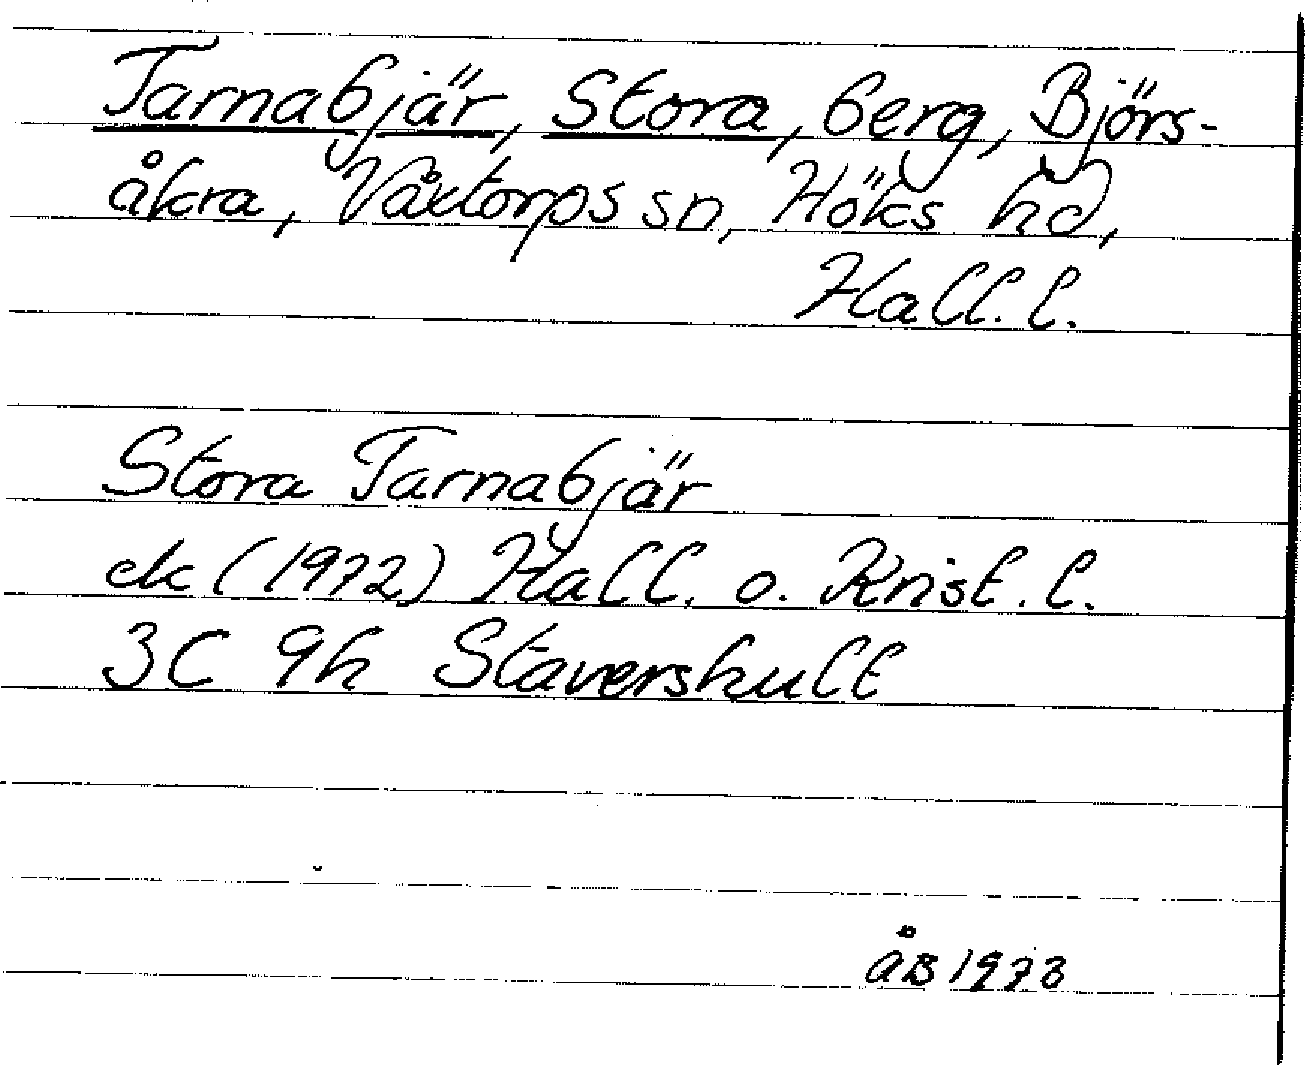 Tarnabjär, Stora, berg, Björs-
åkra, Våxtorps sn, Höks hd,
Hall. l.
Stora Tarnabjär
ek (1972) Hall. o. Krist. l.
3C 9h Stavershult
ÅB 1973